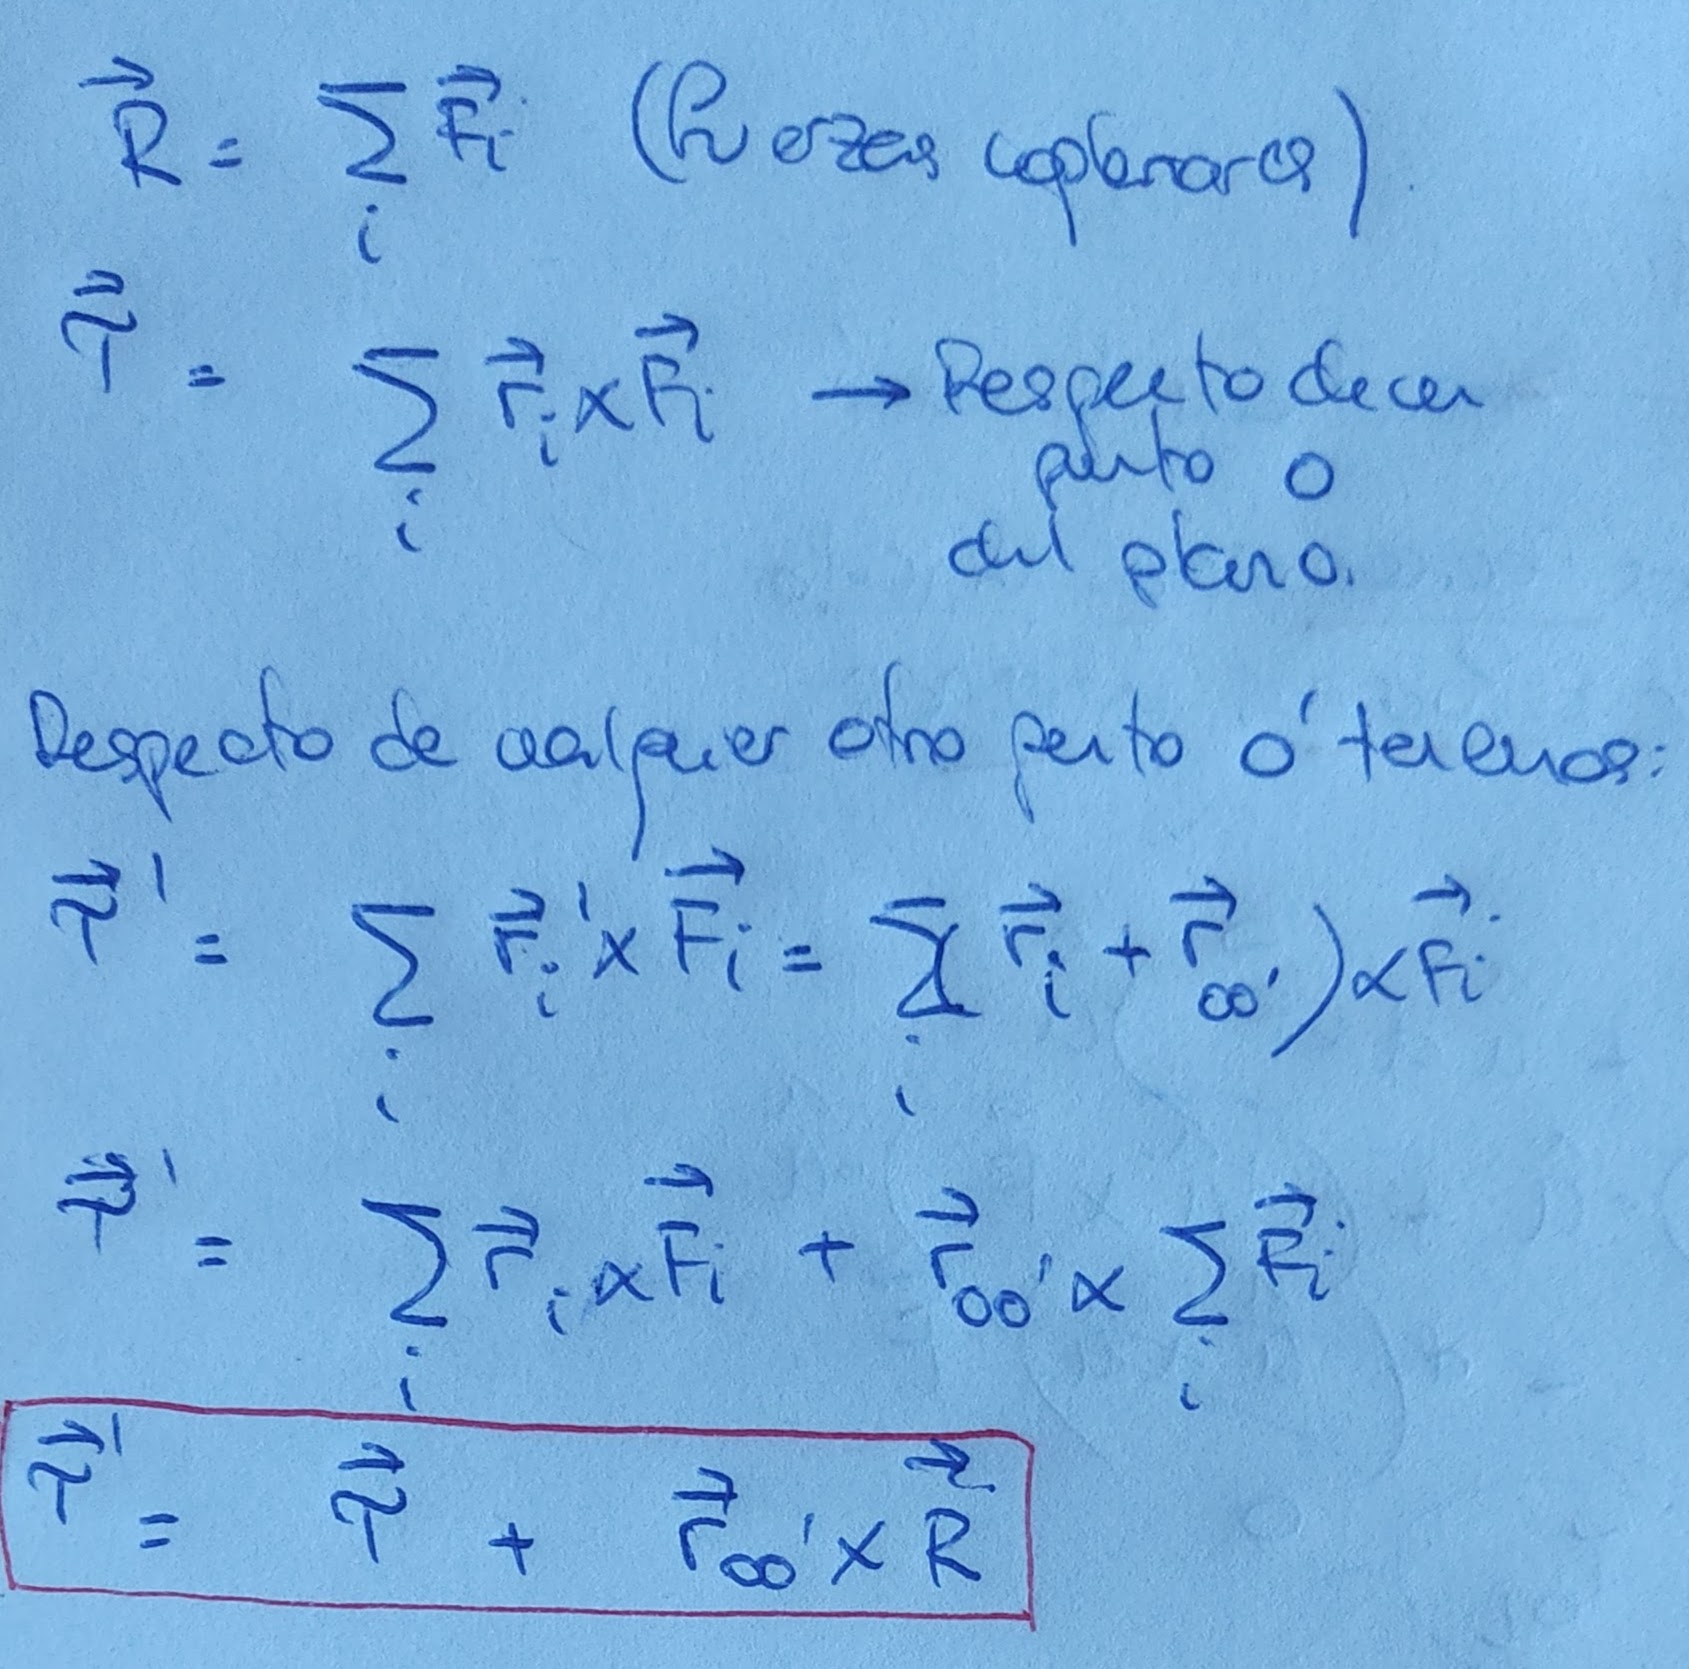 R⃗ = Σᵢ F⃗ᵢ (Fuerzas coplanares).
τ⃗ = Σᵢ r⃗ᵢ × F⃗ᵢ → Respecto de un
punto O
del plano.
Respecto de cualquier otro punto O' tenemos:
τ⃗' = Σᵢ r⃗ᵢ' × F⃗ᵢ = Σᵢ (r⃗ᵢ + r⃗ₒₒ') × F⃗ᵢ
τ⃗' = Σᵢ r⃗ᵢ × F⃗ᵢ + r⃗ₒₒ' × Σᵢ F⃗ᵢ
τ⃗' = τ⃗ + r⃗ₒₒ' × R⃗